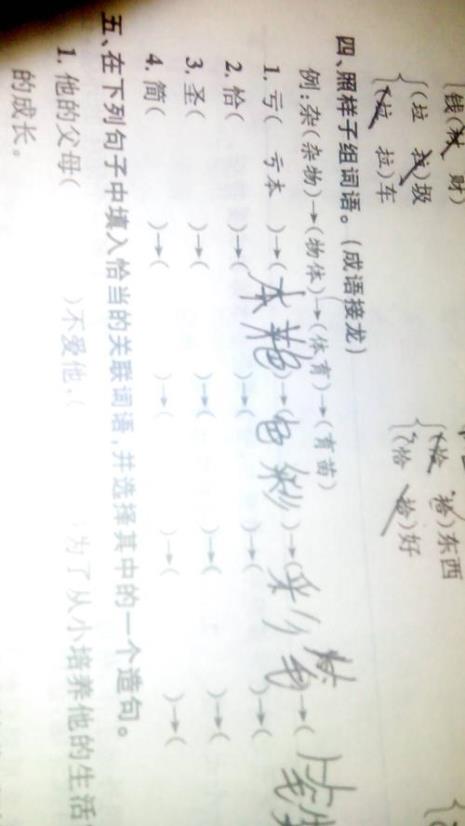 钱(财 财)
(垃 拉)圾
(垃 拉)车
(恰 拾)东西
(恰 拾)好
四、照样子组词语。(成语接龙)
例:杂(杂物)→(物体)→(体育)→(育苗)
1. 亏( 亏本 )→(本 )→(色彩)→(彩 )→(
2. 恰( )→( )→( )→( )→(
3. 圣( )→( )→( )→( )→(
4. 简( )→( )→( )→( )→(
五、在下列句子中填入恰当的关联词语,并选择其中的一个造句。
1. 他的父母( )不爱他,( )为了从小培养他的生活
的成长。